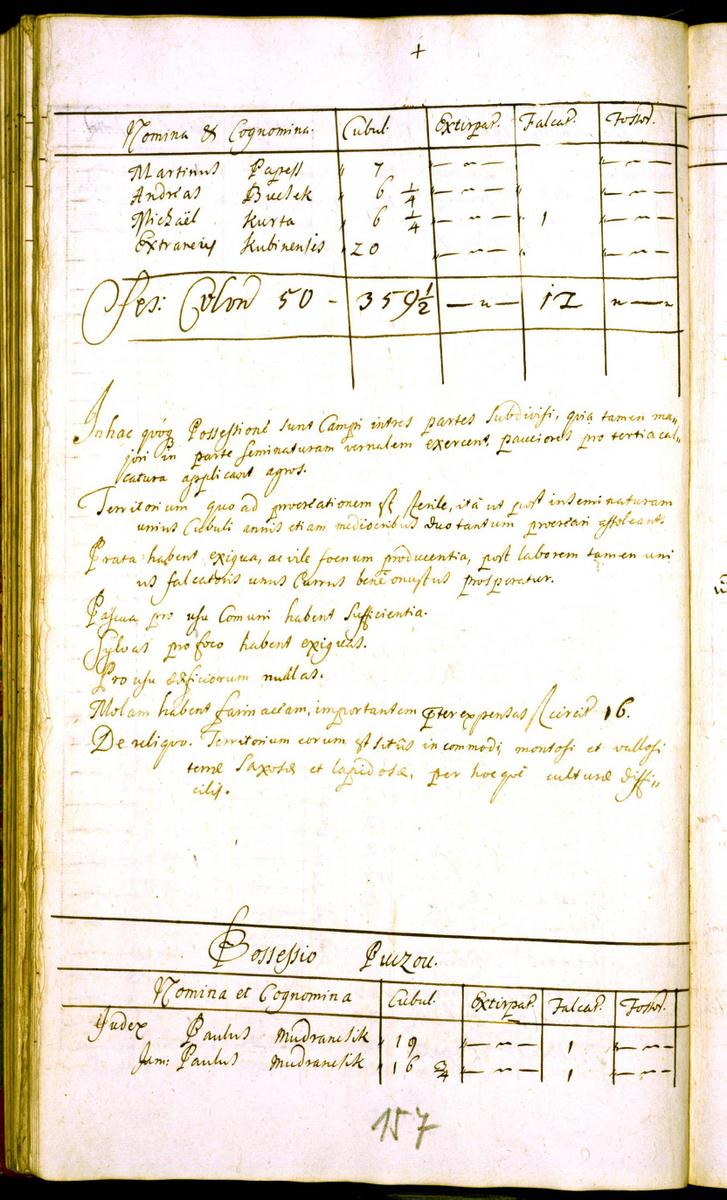 +
Nomina & Cognomina. Cubul. Extirpat. Falcat. Fossor.
Martinus Papess " 7 " — " — " — " —
Andreas Bucsek " 6 1/4 " — " — " " — " —
Michaël Kurta " 6 1/4 " — " — " 1 " — " —
Extraneus Kubinensis " 20 " — " — " " — " —
Ses: Colon 50 - 359 1/2 — " — 12 " — "
In hac quoq Possessione sunt Campi in tres partes Subdivisi, quia tamen ma„
jori in parte seminaturam vernalem exercent, pauciores pro tertia cal„
catura applicant agros.
Territorium quo ad procreationem est sterile, ità ut post inseminaturam
unius Cubuli annis etiam mediocribus duo tantum procreari assoleant.
Prata habent exigua, ac vile foenum producentia, post laborem tamen uni
us falcatoris unus Currus bene onustus prosperatur.
Pascua pro usu Comuni habent Sufficientia.
Sylvas pro foco habent exiguas.
Pro usu aedificiorum nullas.
Molam habent farinaceam, importantem pter expensas fl circit 16.
De reliquo. Territorium eorum est sitûs incommodi, montosi et vallosi
terrae Saxosae et lapidosae, per hoc qe culturae diffi„
cilis.
Possessio Puczou.
Nomina et Cognomina Cubul. Extirpat. Falcat. Fossor.
Judex Paulus Mudrancsik " 19 " — " — 1 " — " —
Jun: Paulus Mudrancsik " 16 2/4 " — " — 1 " — " —
157